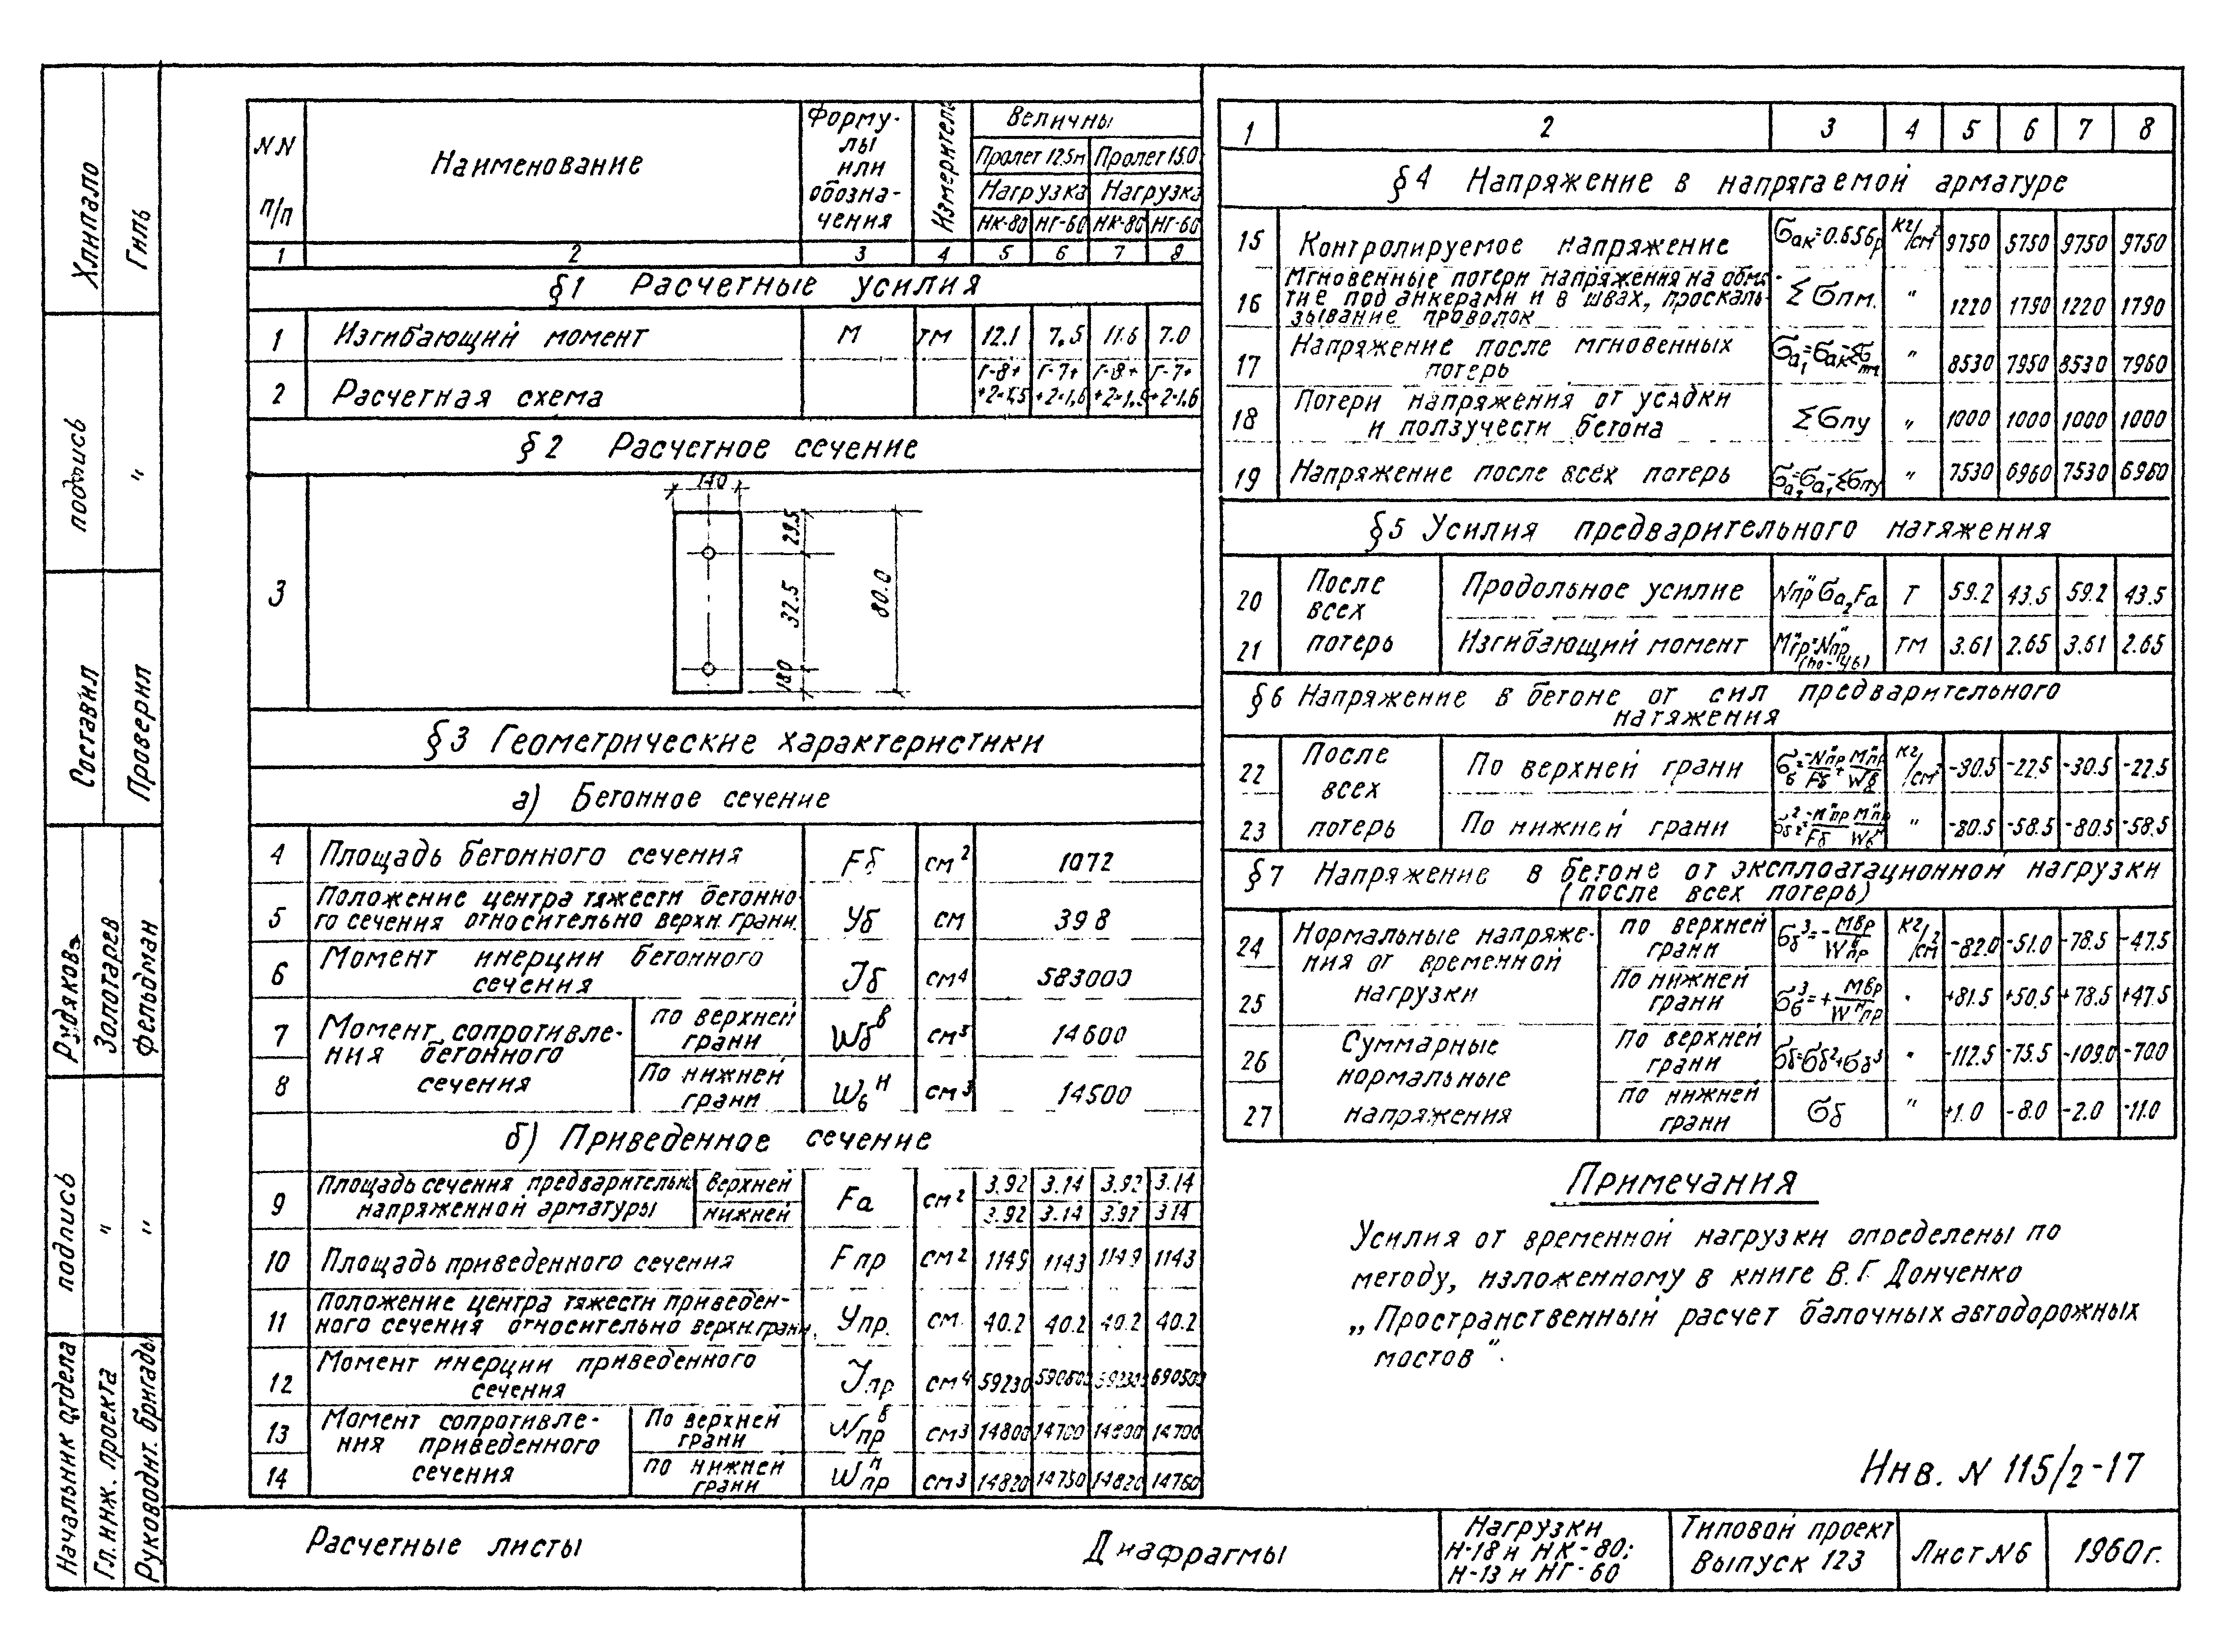 NN п/п | Наименование | Форму-лы или обозна-чения | Измеритель | Величны
Пролет 12.5м | Пролет 15.0
Нагрузка | Нагрузка
НК-80 | НГ-60 | НК-80 | НГ-60
1 | 2 | 3 | 4 | 5 | 6 | 7 | 8
§1 Расчетные усилия
1 | Изгибающий момент | М | тм | 12.1 | 7.5 | 11.6 | 7.0
2 | Расчетная схема | Г-8+ +2×1,5 | Г-7+ +2×1,6 | Г-8+ +2×1,5 | Г-7+ +2×1.6
§2 Расчетное сечение
3
140
29.5
32.5
180
80.0
§3 Геометрические характеристики
а) Бетонное сечение
4 | Площадь бетонного сечения | Fб | см² | 1072
5 | Положение центра тяжести бетонно-го сечения относительно верхн. грани. | Уб | см | 39 8
6 | Момент инерции бетонного сечения | Jб | см⁴ | 583000
7 | Момент сопротивле-ния бетонного сечения | по верхней грани | Wбᴮ | см³ | 14600
8 | По нижней грани | Wбᴴ | см³ | 14500
б) Приведенное сечение
9 | Площадь сечения предварительно напряженной арматуры | верхней | Fа | см² | 3.92 | 3.14 | 3.92 | 3.14
нижней | 3.92 | 3.14 | 3.92 | 3.14
10 | Площадь приведенного сечения | Fпр | см² | 1149 | 1143 | 1149 | 1143
11 | Положение центра тяжести приведен-ного сечения относительно верхн. грани. | Упр. | см. | 40.2 | 40.2 | 40.2 | 40.2
12 | Момент инерции приведенного сечения | Jпр | см⁴ | 59230
13 | Момент сопротивле-ния приведенного сечения | По верхней грани | Wпрᴮ | см³ | 14800 | 14700 | 14800 | 14700
14 | по нижней грани | Wпрᴴ | см³ | 14820 | 14750 | 14820 | 14760
1 | 2 | 3 | 4 | 5 | 6 | 7 | 8
§4 Напряжение в напрягаемой арматуре
15 | Контролируемое напряжение | σак=0.65σр | кг/см² | 9750 | 9750 | 9750 | 9750
16 | Мгновенные потери напряжения на обмя-тие под анкерами и в швах, проскаль-зывание проволок | Σσпм. | " | 1220 | 1790 | 1220 | 1790
17 | Напряжение после мгновенных потерь | σа₁=σак-Σσпм | " | 8530 | 7950 | 8530 | 7960
18 | Потери напряжения от усадки и ползучести бетона | Σσпу | " | 1000 | 1000 | 1000 | 1000
19 | Напряжение после всех потерь | σа₂=σа₁-Σσпу | " | 7530 | 6960 | 7530 | 6960
§5 Усилия предварительного натяжения
20 | После всех потерь | Продольное усилие | Nпр" σа₂Fа | Т | 59.2 | 43.5 | 59.2 | 43.5
21 | Изгибающий момент | Мпр"=Nпр" (hо-Уб) | тм | 3.61 | 2.65 | 3.61 | 2.65
§6 Напряжение в бетоне от сил предварительного натяжения
22 | После всех потерь | По верхней грани | σб²=-Nпр"/Fб+Мпр"/Wбᴮ | кг/см² | -30.5 | -22.5 | -30.5 | -22.5
23 | По нижней грани | σб²=-Nпр"/Fб Мпр"/Wбᴴ | " | -80.5 | -58.5 | -80.5 | -58.5
§7 Напряжение в бетоне от эксплоатационной нагрузки (после всех потерь)
24 | Нормальные напряже-ния от временной нагрузки | по верхней грани | σб³=-Мвр/Wпрᴮ | кг/см² | -82.0 | -51.0 | -78.5 | -47.5
25 | По нижней грани | σб³=+Мвр/Wпрᴴ | " | +81.5 | +50.5 | +78.5 | +47.5
26 | Суммарные нормальные напряжения | По верхней грани | σб=σб²+σб³ | " | -112.5 | -75.5 | -109.0 | -70.0
27 | по нижней грани | σб | " | +1.0 | -8.0 | -2.0 | -11.0
Примечания
Усилия от временной нагрузки определены по
методу, изложенному в книге В.Г Донченко
„Пространственный расчет балочных автодорожных
мостов".
Инв. N 115/2-17
Расчетные листы | Диафрагмы | Нагрузки Н-18 и НК-80; Н-13 и НГ-60 | Типовой проект Выпуск 123 | Лист N6 | 1960г.
Начальник отдела | подпись | Рудяков
Гл. инж. проекта | " | Золотарев
Руководит. бригады | " | Фельдман
Составил | подпись | Хлипало
Проверил | " | Гиль